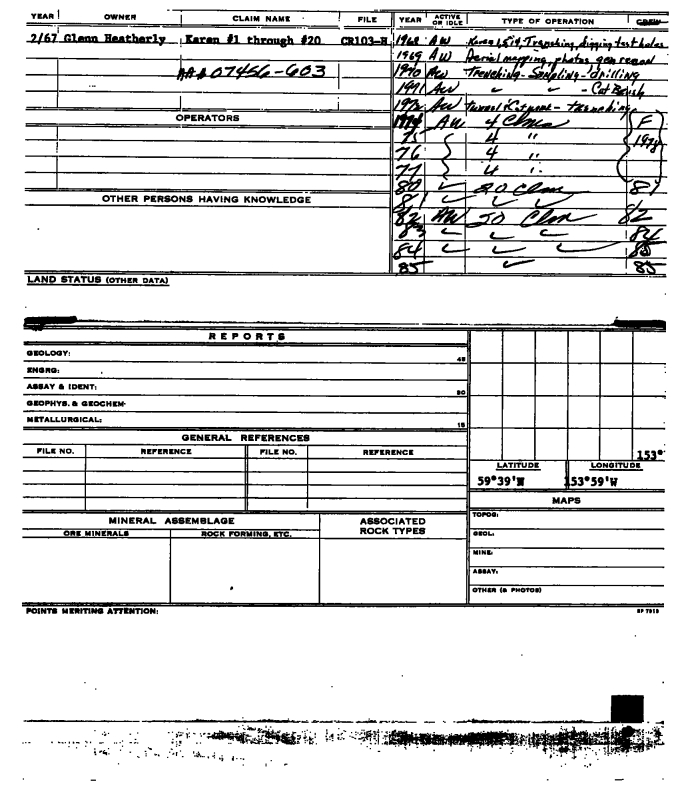 YEAR OWNER CLAIM NAME FILE YEAR ACTIVE OR IDLE TYPE OF OPERATION CREW
2/67 Glenn Heatherly Karen #1 through #20 CR103-H 1968 AW Karen 1,5,19, Trenching, digging test holes
1969 AW Aerial mapping, photos, geo recon
AA 07456-603 1970 AW Trenching - Sampling - drilling
1971 AW " " - Cat
1972 AW - trenching
OPERATORS
1974 AW 4 Clms F
75 4 " 1978
76 4 "
77 4 "
80 ✓ 20 Clm 81
OTHER PERSONS HAVING KNOWLEDGE
81 ✓ ✓ ✓
82 AW 50 Clm 82
83 ✓ ✓ ✓ 84
84 ✓ ✓ ✓ 85
85 ✓ 85
LAND STATUS (OTHER DATA)
REPORTS
GEOLOGY: 45
ENGRG:
ASSAY & IDENT: 30
GEOPHYS. & GEOCHEM-
METALLURGICAL: 15
GENERAL REFERENCES
FILE NO. REFERENCE FILE NO. REFERENCE
153°
LATITUDE LONGITUDE
59°39'N 153°59'W
MAPS
MINERAL ASSEMBLAGE ASSOCIATED ROCK TYPES
ORE MINERALS ROCK FORMING, ETC.
TOPOG:
GEOL:
MINE:
ASSAY:
OTHER (& PHOTOS)
POINTS MERITING ATTENTION: SP 7915